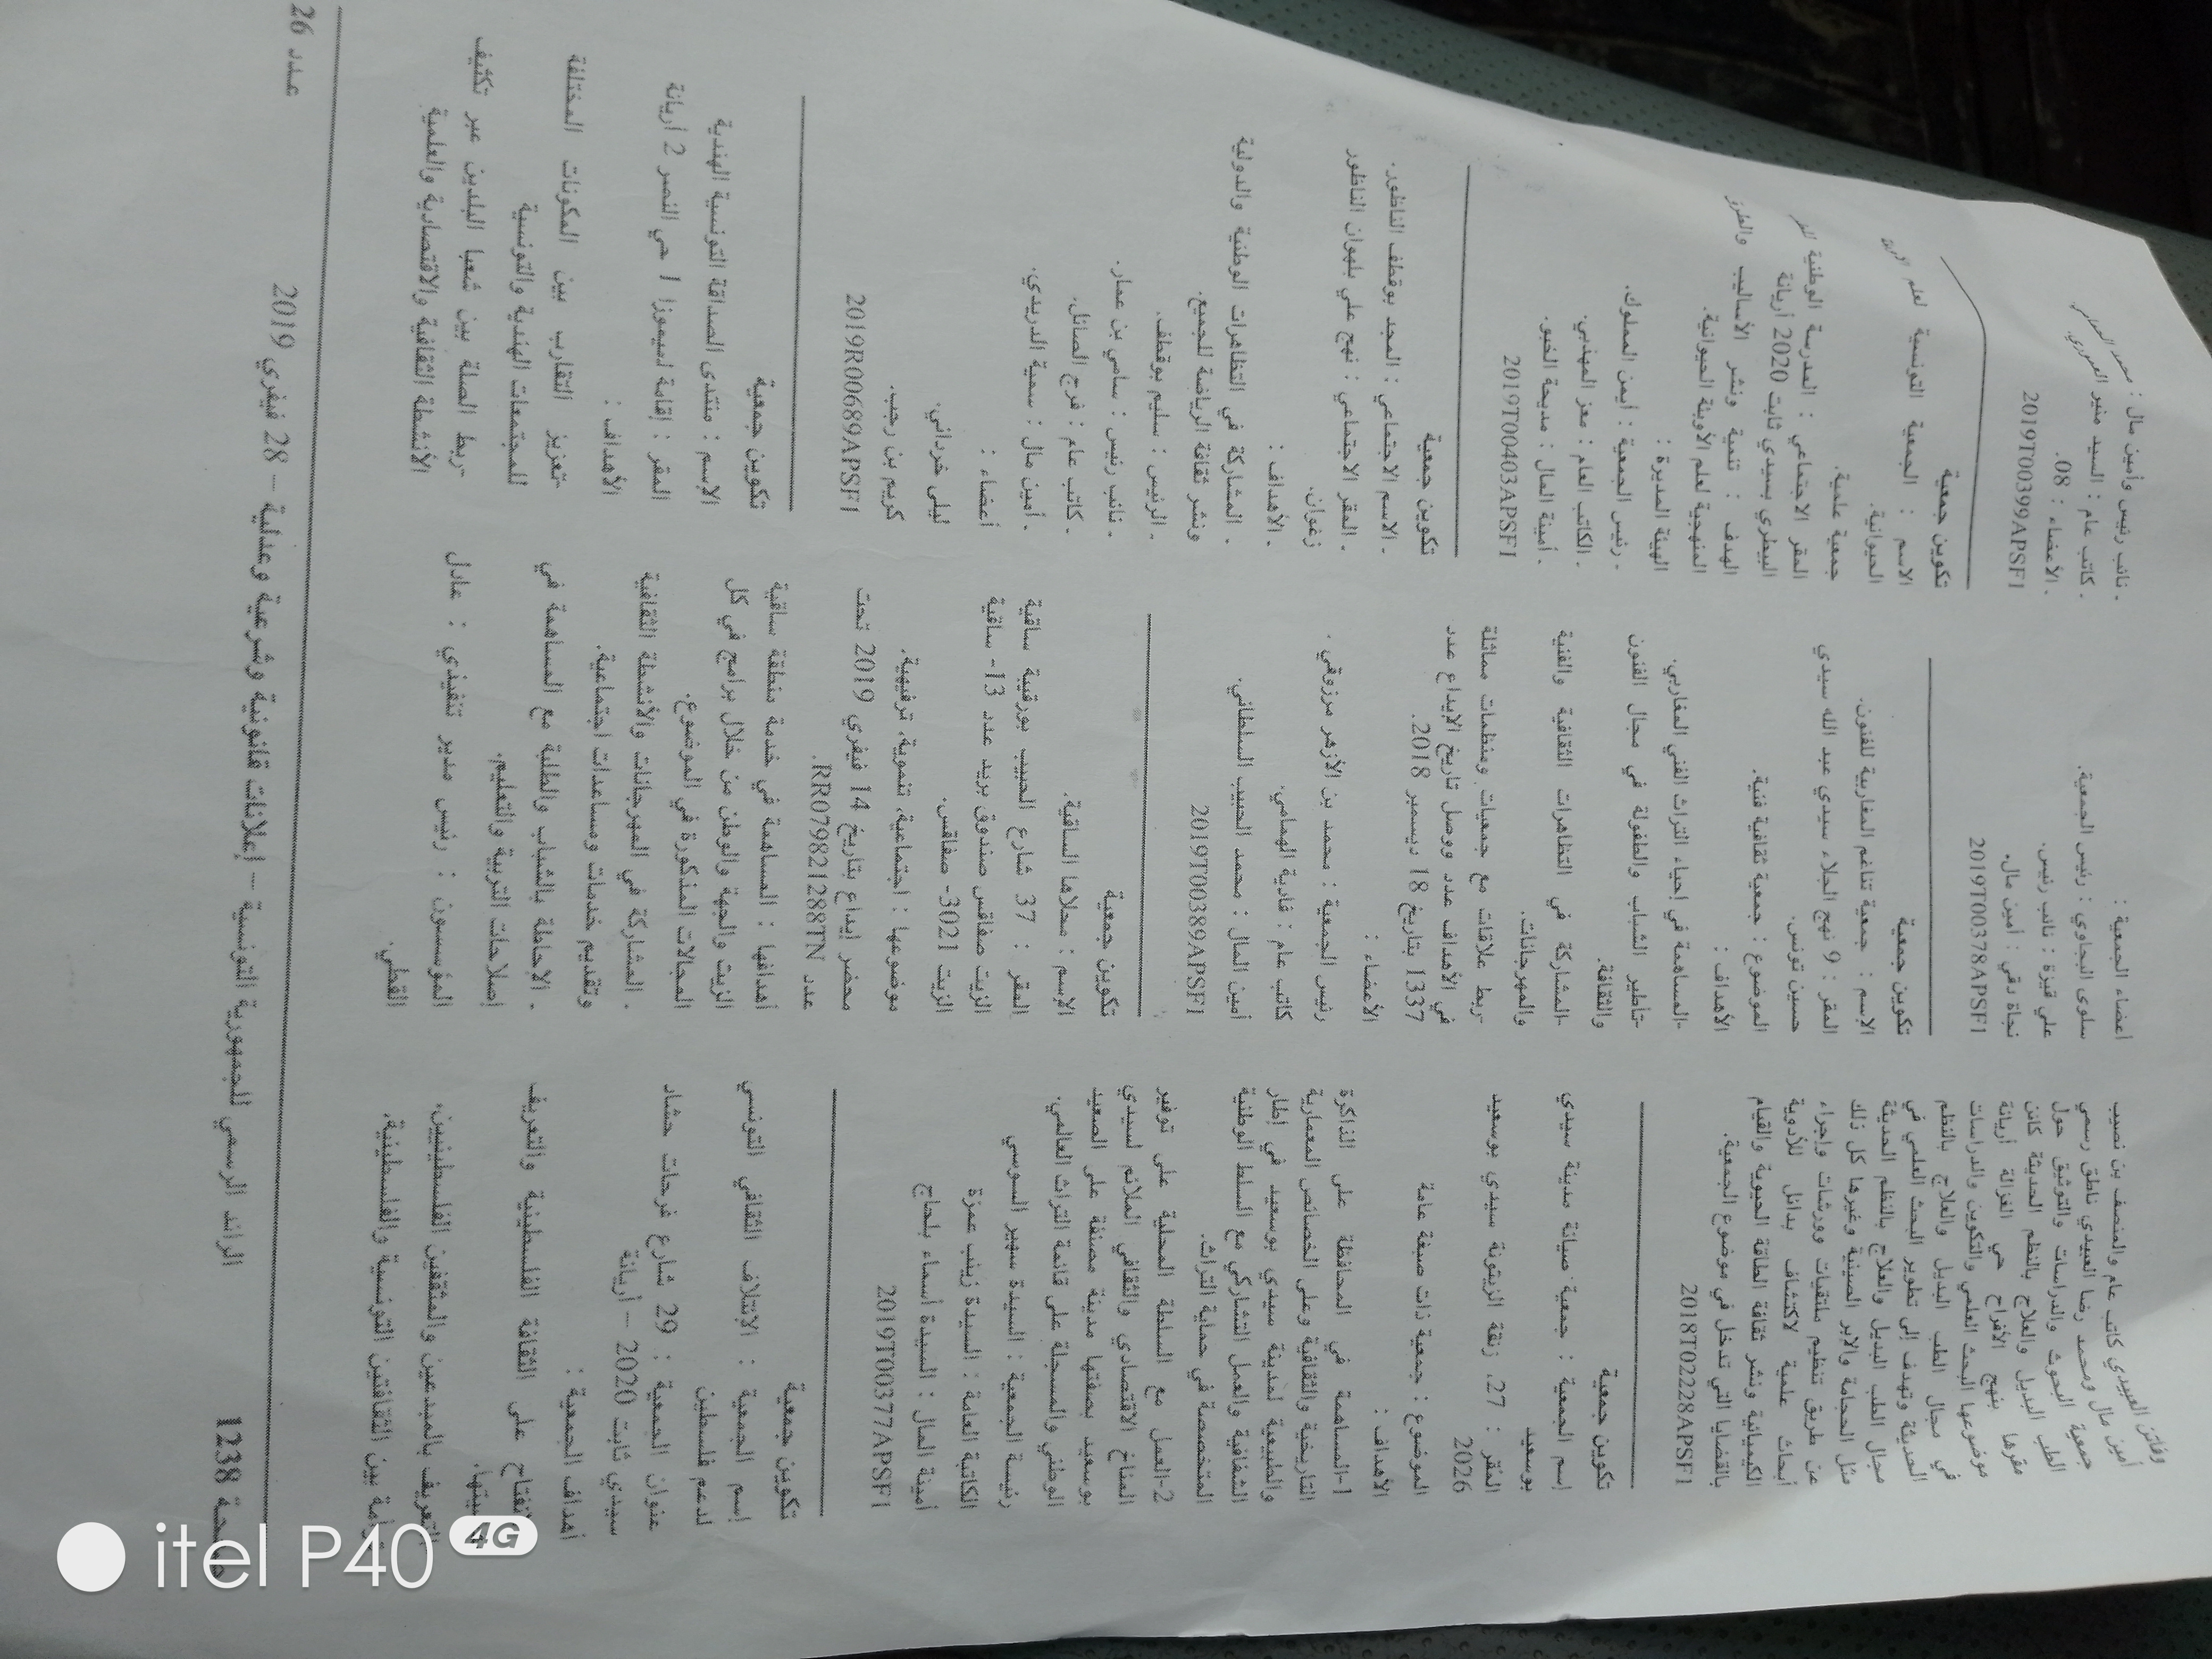 وفائز العبيدي كاتب عام والمنصف بن نصيب
أمين مال ومحمد رضا العبيدي ناطق رسمي
جمعية البحوث والدراسات والتوثيق حول
الطب البديل والعلاج بالنظم الحديثة كائن
مقرها بنهج الأفراح حي الغزالة أريانة
موضوعها البحث العلمي والتكوين والدراسات
في مجال الطب البديل والعلاج بالنظم
الحديثة وتهدف إلى تطوير البحث العلمي في
مجال الطب البديل والعلاج بالنظم الحديثة
مثل الحجامة والابر الصينية وغيرها كل ذلك
عن طريق تنظيم ملتقيات وورشات وإجراء
أبحاث علمية لاكتشاف بدائل للأدوية
الكيميائية ونشر ثقافة الطاقة الحيوية والقيام
بالقضايا التي تدخل في موضوع الجمعية.
2018T02228APSF1
تكوين جمعية
إسم الجمعية : جمعية صيانة مدينة سيدي
بوسعيد
المقر : 27، زنقة الزيتونة سيدي بوسعيد
2026
الموضوع : جمعية ذات صبغة عامة
الأهداف :
1-المساهمة في المحافظة على الذاكرة
التاريخية والثقافية وعلى الخصائص المعمارية
والطبيعية لمدينة سيدي بوسعيد في إطار
الشفافية والعمل التشاركي مع السلط الوطنية
المتخصصة في حماية التراث.
2-العمل مع السلطة المحلية على توفير
المناخ الاقتصادي والثقافي الملائم لسيدي
بوسعيد بصفتها مدينة مصنفة على الصعيد
الوطني والمسجلة على قائمة التراث العالمي.
رئيسة الجمعية : السيدة سهير السوسي
الكاتبة العامة : السيدة زينب عمرة
أمينة المال : السيدة أسماء بلحاج
2019T00377APSF1
تكوين جمعية
إسم الجمعية : الائتلاف الثقافي التونسي
لدعم فلسطين
عنوان الجمعية : 29 شارع فرحات حشاد
سيدي ثابت 2020 – أريانة
أهداف الجمعية :
على الثقافة الفلسطينية والتعريف
التعريف بالمبدعين والمثقفين الفلسطينيين.
بين الثقافتين التونسية والفلسطينية.
أعضاء الجمعية :
سلوى البجاوي : رئيس الجمعية.
علي قيزة : نائب رئيس.
نجاة دقي : أمين مال.
2019T00378APSF1
تكوين جمعية
الإسم : جمعية تناغم المغاربية للفنون.
المقر : 9 نهج الجلاء سيدي عبد الله سيدي
حسين تونس.
الموضوع : جمعية ثقافية فنية.
الأهداف :
-المساهمة في إحياء التراث الفني المغاربي.
-تأطير الشباب والطفولة في مجال الفنون
والثقافة.
-المشاركة في التظاهرات الثقافية والفنية
والمهرجانات.
-ربط علاقات مع جمعيات ومنظمات مماثلة
في الأهداف عدد ووصل تاريخ الإيداع عدد
1337 بتاريخ 18 ديسمبر 2018.
الأعضاء :
رئيس الجمعية : محمد بن الأزهر مرزوقي.
كاتب عام : فادية الهمامي.
أمين المال : محمد الحبيب السلطاني.
2019T00389APSF1
تكوين جمعية
الإسم : محلاها الساقية.
المقر : 37 شارع الحبيب بورقيبة ساقية
الزيت صفاقس صندوق بريد عدد 13- ساقية
الزيت 3021- صفاقس.
موضوعها : اجتماعية، تنموية، ترفيهية.
محضر إيداع بتاريخ 14 فيفري 2019 تحت
عدد RR079821288TN.
أهدافها : المساهمة في خدمة منطقة ساقية
الزيت والجهة والوطن من خلال برامج في كل
المجالات المذكورة في الموضوع.
. المشاركة في المهرجانات والأنشطة الثقافية
وتقديم خدمات ومساعدات اجتماعية.
. الاحاطة بالشباب والطلبة مع المساهمة في
إصلاحات التربية والتعليم.
المؤسسون : رئيس مدير تنفيذي : عادل
القطي.
. نائب رئيس وأمين مال : محمد
. كاتب عام : السيد منير
. الأعضاء : 08.
2019T00399APSF1
تكوين جمعية
الاسم : الجمعية التونسية لعلم
الحيوانية.
جمعية علمية.
المقر الاجتماعي : المدرسة الوطنية
البيطري بسيدي ثابت 2020 أريانة
الهدف : تنمية ونشر الأساليب والطرز
المنهجية لعلم الأوبئة الحيوانية.
الهيئة المديرة :
. رئيس الجمعية : أيمن المملوك.
. الكاتب العام : معز المهذبي.
. أمينة المال : مديحة الخبو.
2019T00403APSF1
تكوين جمعية
. الاسم الاجتماعي : المجد بوقطف الناظور.
. المقر الاجتماعي : نهج علي بلهوان الناظور
زغوان.
. الأهداف :
. المشاركة في التظاهرات الوطنية والدولية
ونشر ثقافة الرياضة للجميع.
. الرئيس : سليم بوقطف.
. نائب رئيس : سامي بن عمار.
. كاتب عام : فرج الصائل.
. أمين مال : سمية الدريدي.
أعضاء :
ليلى خرداني.
كريم بن رجب.
2019R00689APSF1
تكوين جمعية
الإسم : منتدى الصداقة التونسية الهندية
المقر : إقامة لميموزا 1 حي النصر 2 أريانة
الأهداف :
-تعزيز التقارب بين المكونات المختلفة
للمجتمعات الهندية والتونسية
-ربط الصلة بين شعبا البلدين عبر تكثيف
الأنشطة الثقافية والاقتصادية والعلمية
صفحة 1238 الرائد الرسمي للجمهورية التونسية -- إعلانات قانونية وشرعية وعدلية – 28 فيفري 2019 عدد 26
itel P40 4G